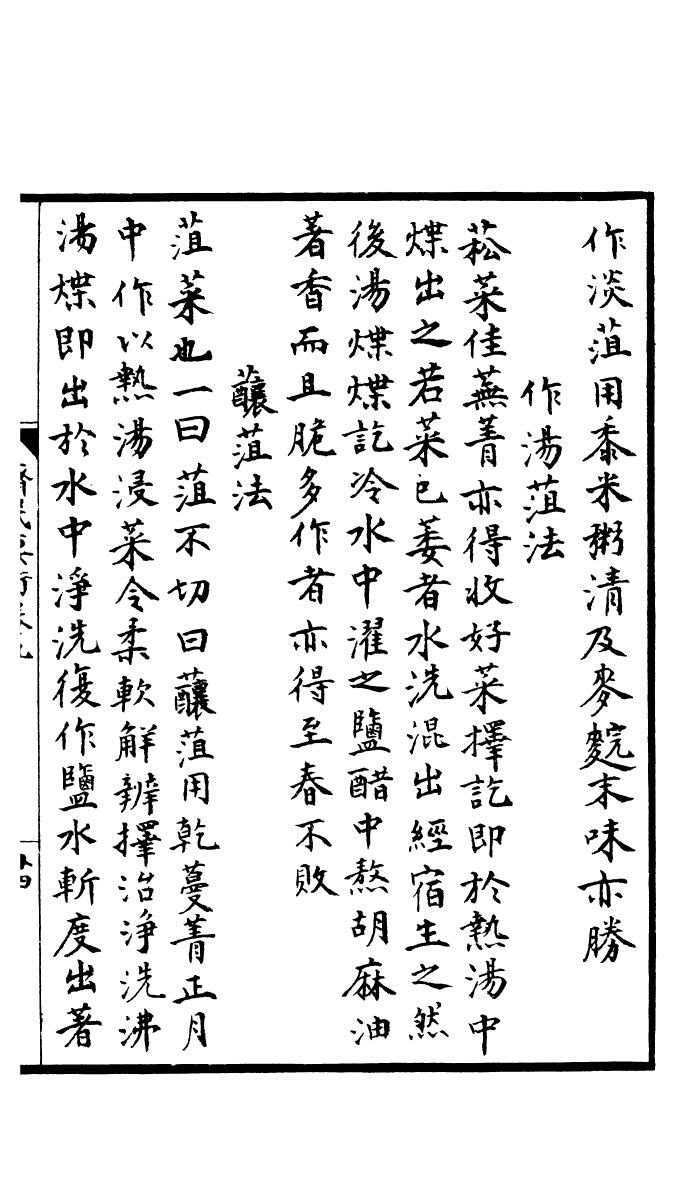 作淡菹用黍米粥清及麥䴷末味亦勝
作湯菹法
菘菜佳蕪菁亦得收好菜擇訖即於熱湯中
煠出之若菜已萎者水洗混出經宿生之然
後湯煠煠訖冷水中濯之鹽醋中熬胡麻油
著香而且脆多作者亦得至春不敗
䕩菹法
菹菜也一曰菹不切曰䕩菹用乾蔓菁正月
中作以熱湯浸菜令柔軟解辨擇治淨洗沸
湯煠即出於水中淨洗復作鹽水斬度出著